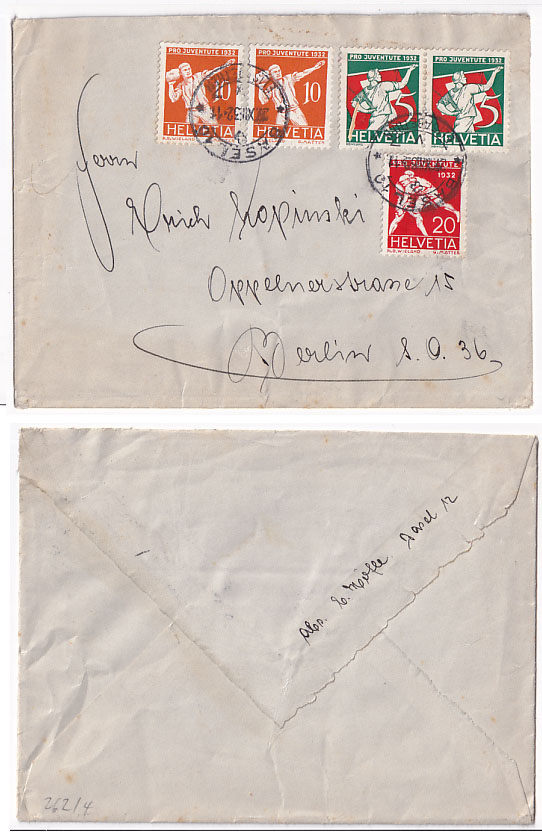 PRO JUVENTUTE 1932
10
HELVETIA
R. WIELAND G. MATTER
PRO JUVENTUTE 1932
10
HELVETIA
R. WIELAND G. MATTER
PRO JUVENTUTE 1932
5
HELVETIA
PRO JUVENTUTE 1932
5
HELVETIA
PRO JUVENTUTE
1932
20
HELVETIA
H.B. WIELAND G. MATTER
BASEL
BASEL
Herrn
Erich Kopinski
Oppelnerstrasse 15
Berlin S.O. 36
Abs. E. Basel 12
262/4